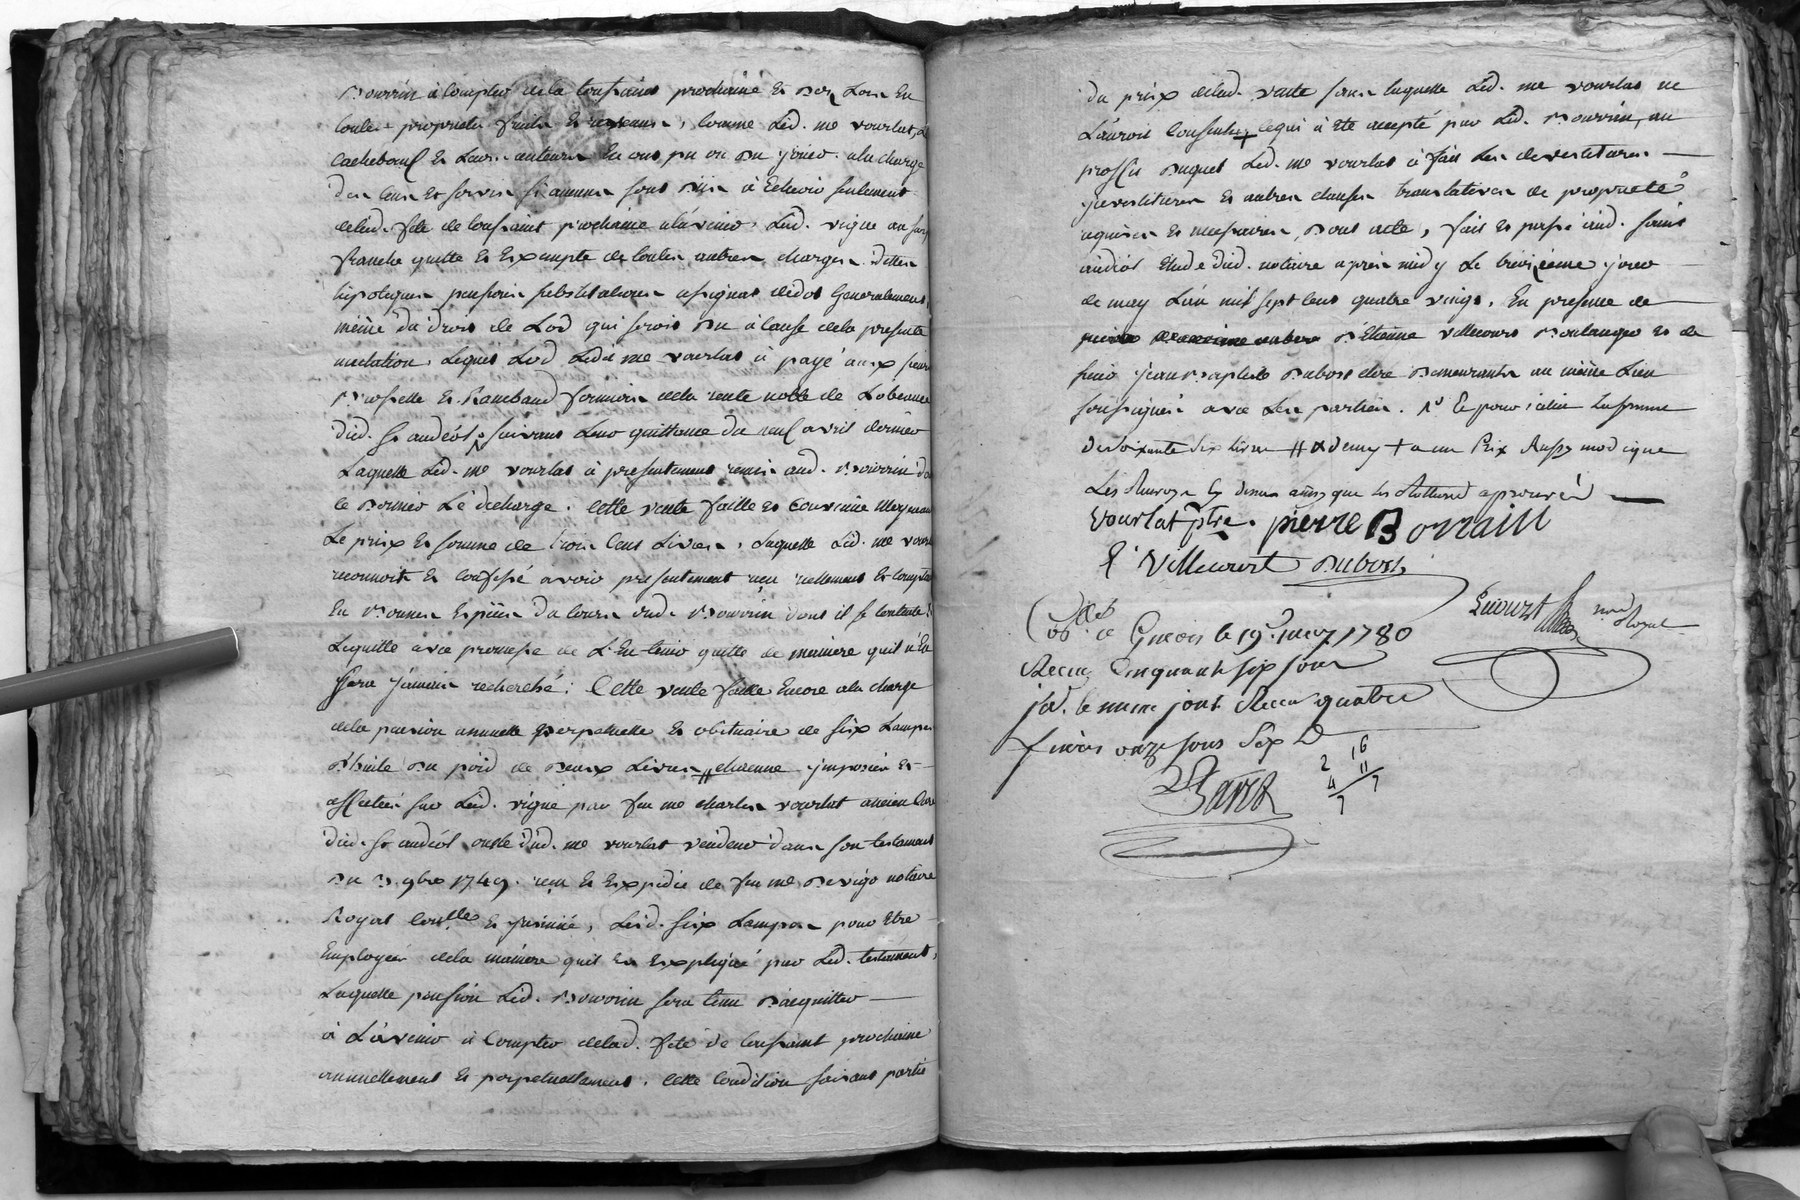 Bourrin à compter de la toussaint prochaine et des lors en
toute propriété fruits et revenus, comme led. me vourlat,
et leurs auteurs en ont pu ou du jouir. a la charge
des cens et servis si aucuns sont dus à échoir seulement
de lad. fête de toussaint prochaine à l'avenir. led. vigne au surp
franche quitte et exempte de toutes autres charges dettes
hipoteques pensions substitutions assignat de dot generalement
même du droit de Lod qui seroit du à cause de la presente
mutation, lequel Lod led. me vourlat à payé aux sieurs
et Rambaud fermiers de la rente noble de
dud. St andéol, suivant leur quittance du neuf avril dernier
Laquelle led. me vourlat à presentement remis aud. Bourrin
le dernier l'é decharge. Cette vente faitte et convenue moyenant
Le prix et somme de trois cens Livres, laquelle led. me vourlat
reconnoit et confessé avoir presentement reçu réellement et comptant
En bonnes espèces du cours dud. Bourrin dont il se contente
Lequitte avec promesse de l'En tenir quitte de manière quil n'En
sera jamais recherché: Cette vente faitte Encore a la charge
de la pension annuelle perpetuelle et obituaire de six Lampes
d'huile du poid de deux Livres // chacune imposées et
affectées sur led. vigne par feu me charles vourlat ancien Curé
dud. St andéol oncle dud. me vourlat vendeur dans son testament
du 9bre 1749. reçu et expedié de feu me notaire
Royal et jnsinué, lesd. six Lampes pour être
Employées de la manière quil est expliqué par led. testament,
Laquelle pension led. Bourrin sera tenu d'acquitter
à L'avenir à compter de lad. fête de toussaint prochaine
annuellement et perpetuellement. Cette condition faisant partie
du prix de lad. vente sans laquelle led. me vourlat ne
L'auroit consentie + ce qui à été accepté par led. Bourrin, au
proffit duquel led. me vourlat à fait les devestitures
jnvestitures et autres clauses translatives de propriété
requises et necessaires, dont acte, fait et passé aud. saint
andéol Etude dud. notaire après midy le treizieme jour
de may L'an mil sept cens quatre vingt. En presence de
d'Etienne villecourt Boulanger et de
sieur jean Baptiste Dubost clerc demeurants au même Lieu
soussignés avec les parties.
de soixante six livres // & demy + a un Prix Aussy modique
Les Renvoys Cy dessus ainsy que les approuvés
Vourlat ptre. pierre Borrain
E. Villecourt Dubost
Conlle. à Givors le 19. may 1780
Reçu Cinquante six sous
jd. le meme jour Reçu quatre
livres onze sous six D
2 16
4 11
7 7